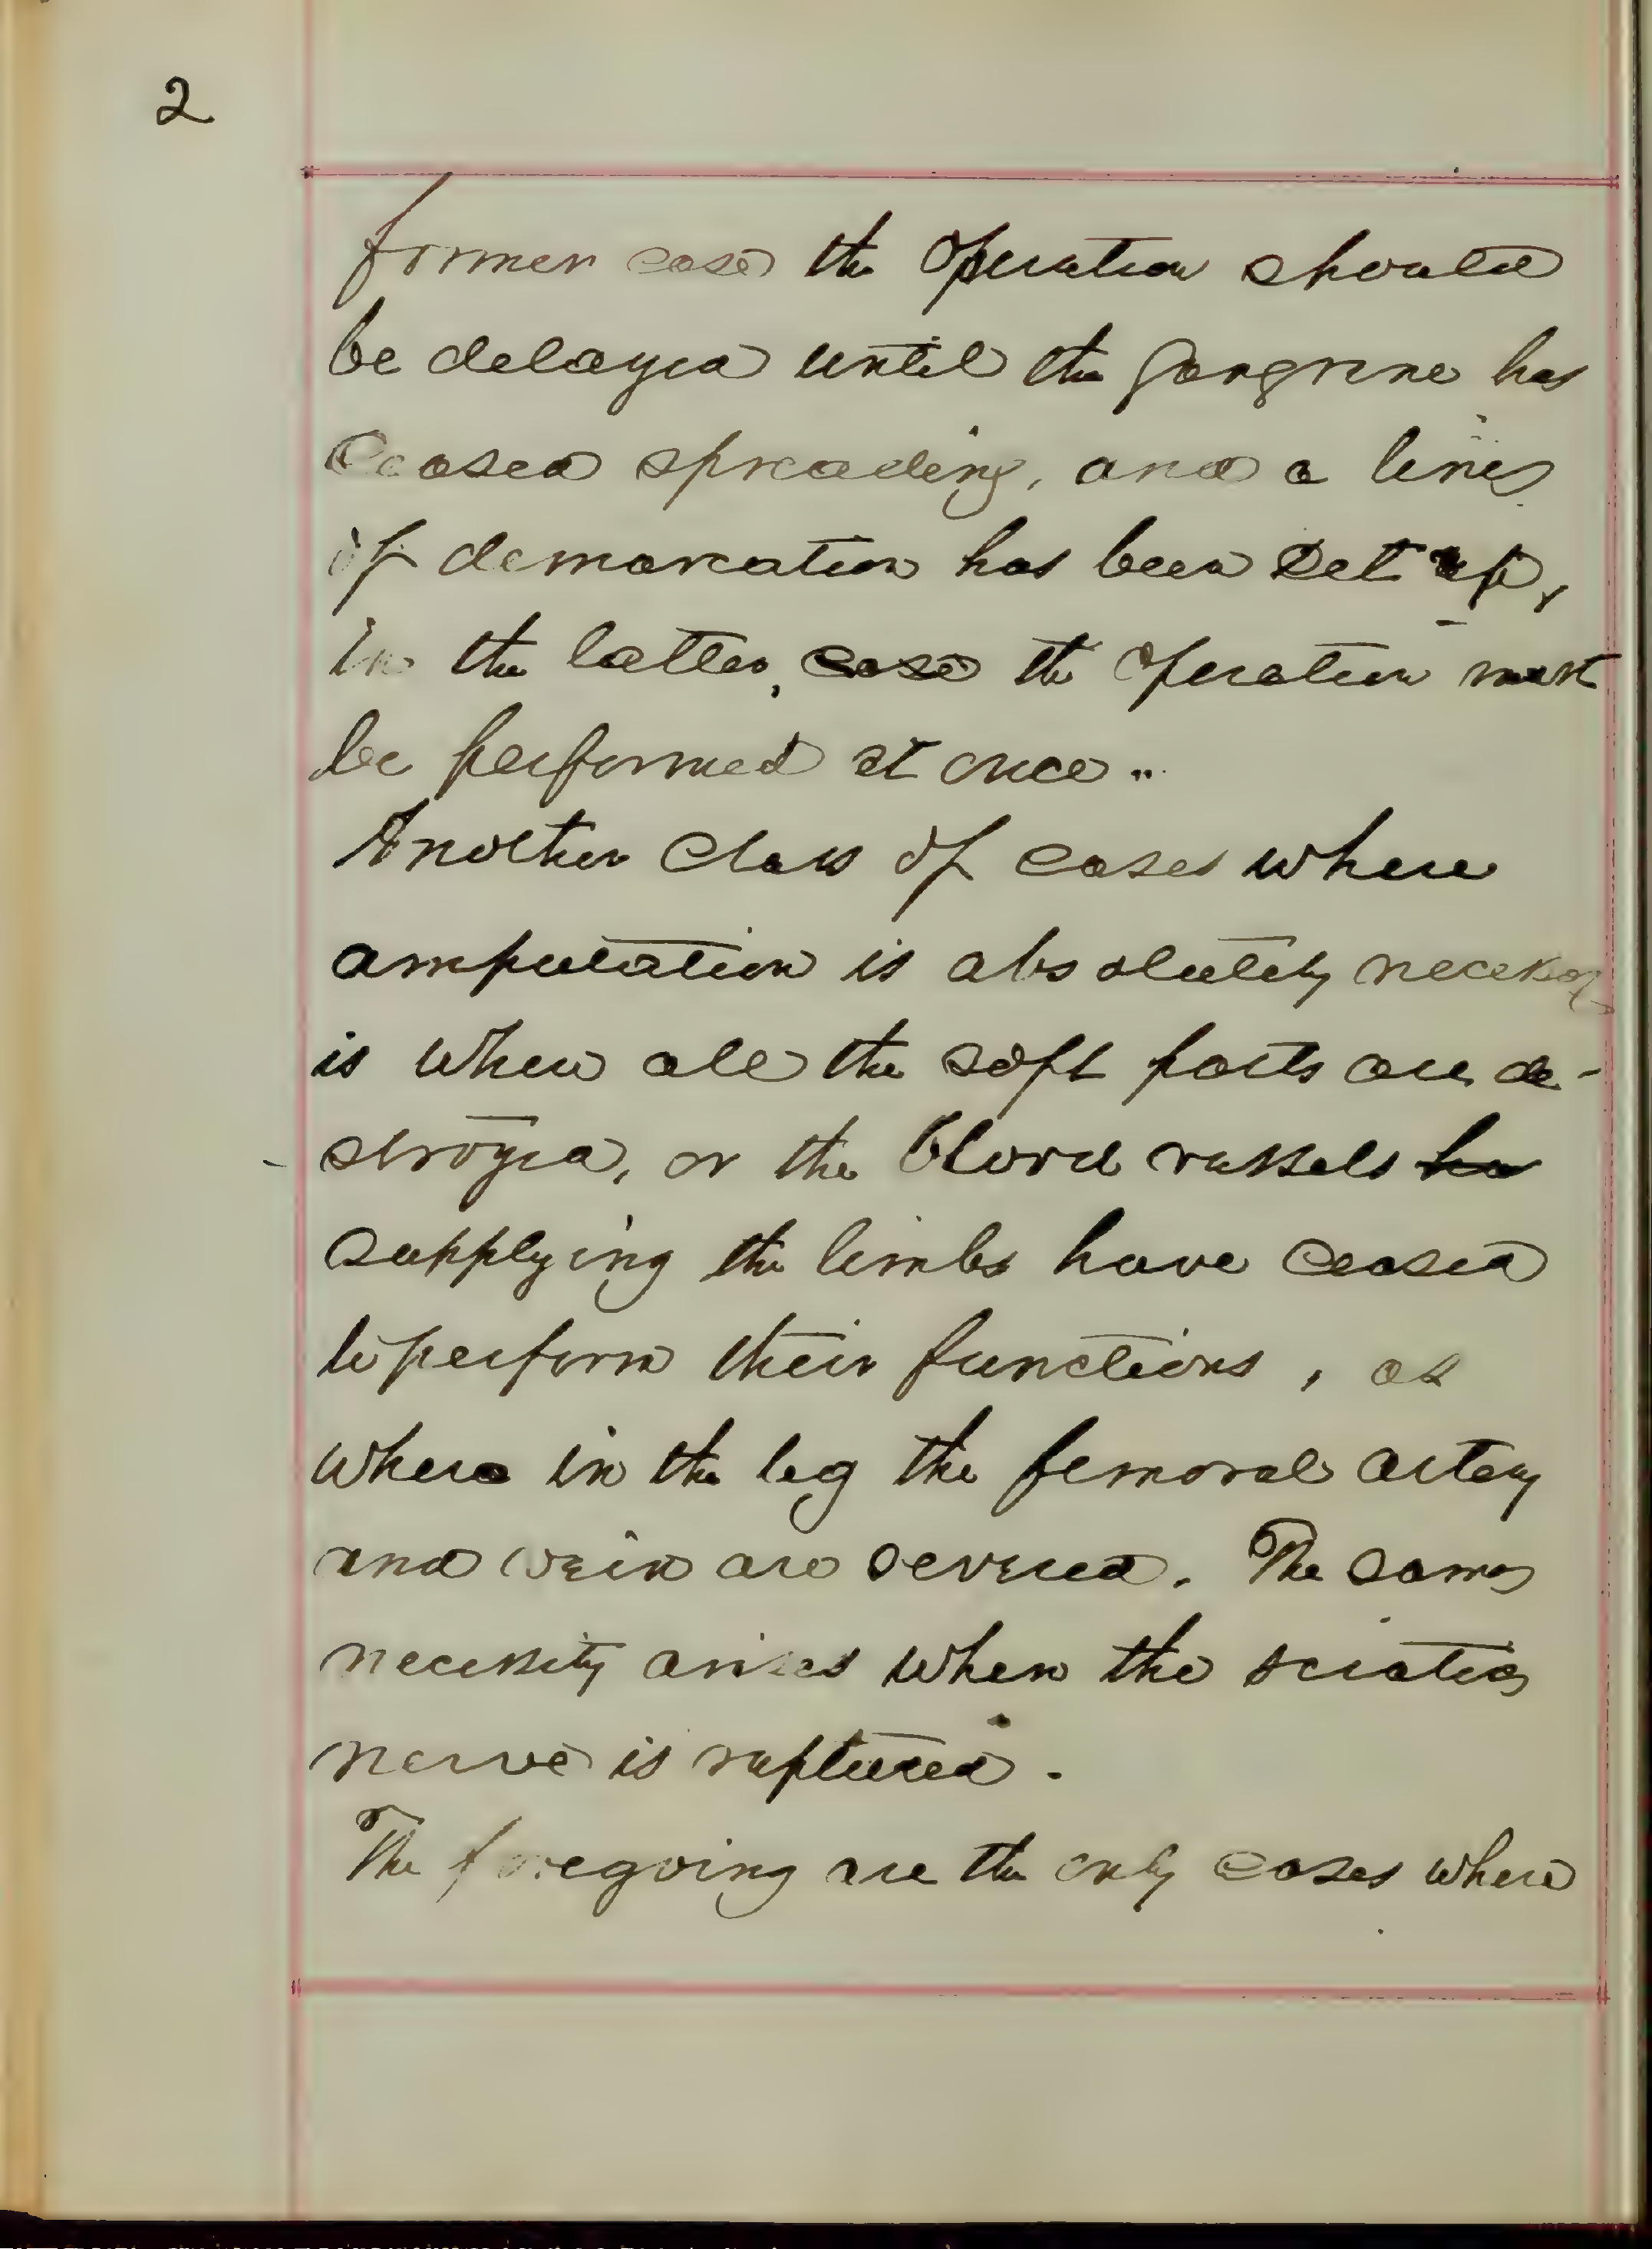 2
former case the operation should
be delayed until the gangrene has
ceased spreading, and a line
of demarcation has been set up,
In the latter, case the operation must
be performed at once..
Another class of cases where
amputation is absolutely necessary
is when all the soft parts are de-
-stroyed, or the blood vessels ha
supplying the limbs have ceased
to perform their functions, as
where in the leg the femoral artery
and vein are severed. The same
necessity arises when the sciatic
nerve is ruptured.
The foregoing are the only cases where